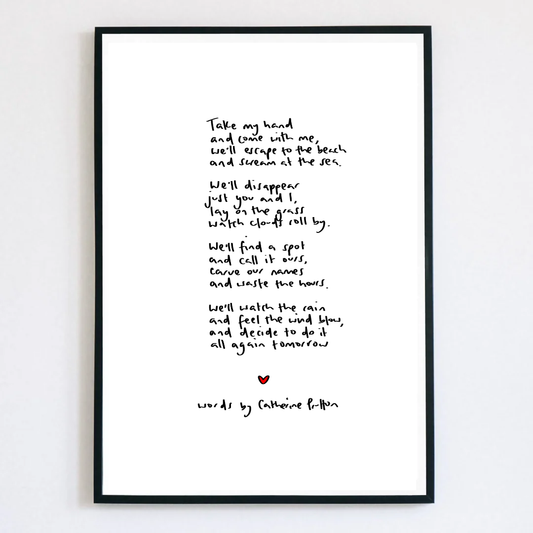 Take my hand
and come with me,
we'll escape to the beach
and scream at the sea.
We'll disappear
just you and I,
lay on the grass
watch clouds roll by.
We'll find a spot
and call it ours,
carve our names
and waste the hours.
We'll watch the rain
and feel the wind blow,
and decide to do it
all again tomorrow
words by Catherine